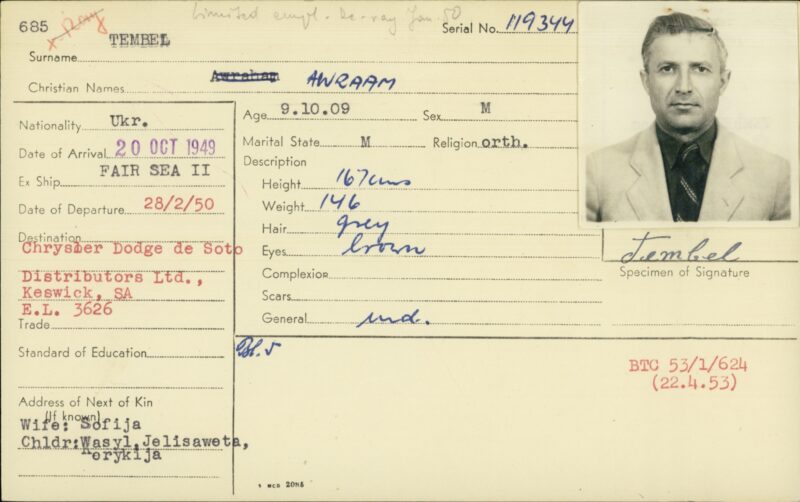 685
x-ray
Limited empl. - xe-ray Jan 50
Serial No. 119344
TEMBEL
Surname
Christian Names Awraham AWRAAM
Nationality Ukr.
Date of Arrival 20 OCT 1949
Ex Ship FAIR SEA II
Date of Departure 28/2/50
Destination
Chrysler Dodge de Soto
Distributors Ltd.,
Keswick, SA
E.L. 3626
Trade
Standard of Education
Address of Next of Kin
(If known)
Wife: Sofija
Chldr: Wasyl, Jelisaweta,
Kerykija
Age 9.10.09 Sex M
Marital State M Religion orth.
Description
Height 167cms
Weight 146
Hair grey
Eyes brown
Complexion
Scars
General Med.
Bl. 5
Tembel
Specimen of Signature
BTC 53/1/624
(22.4.53)